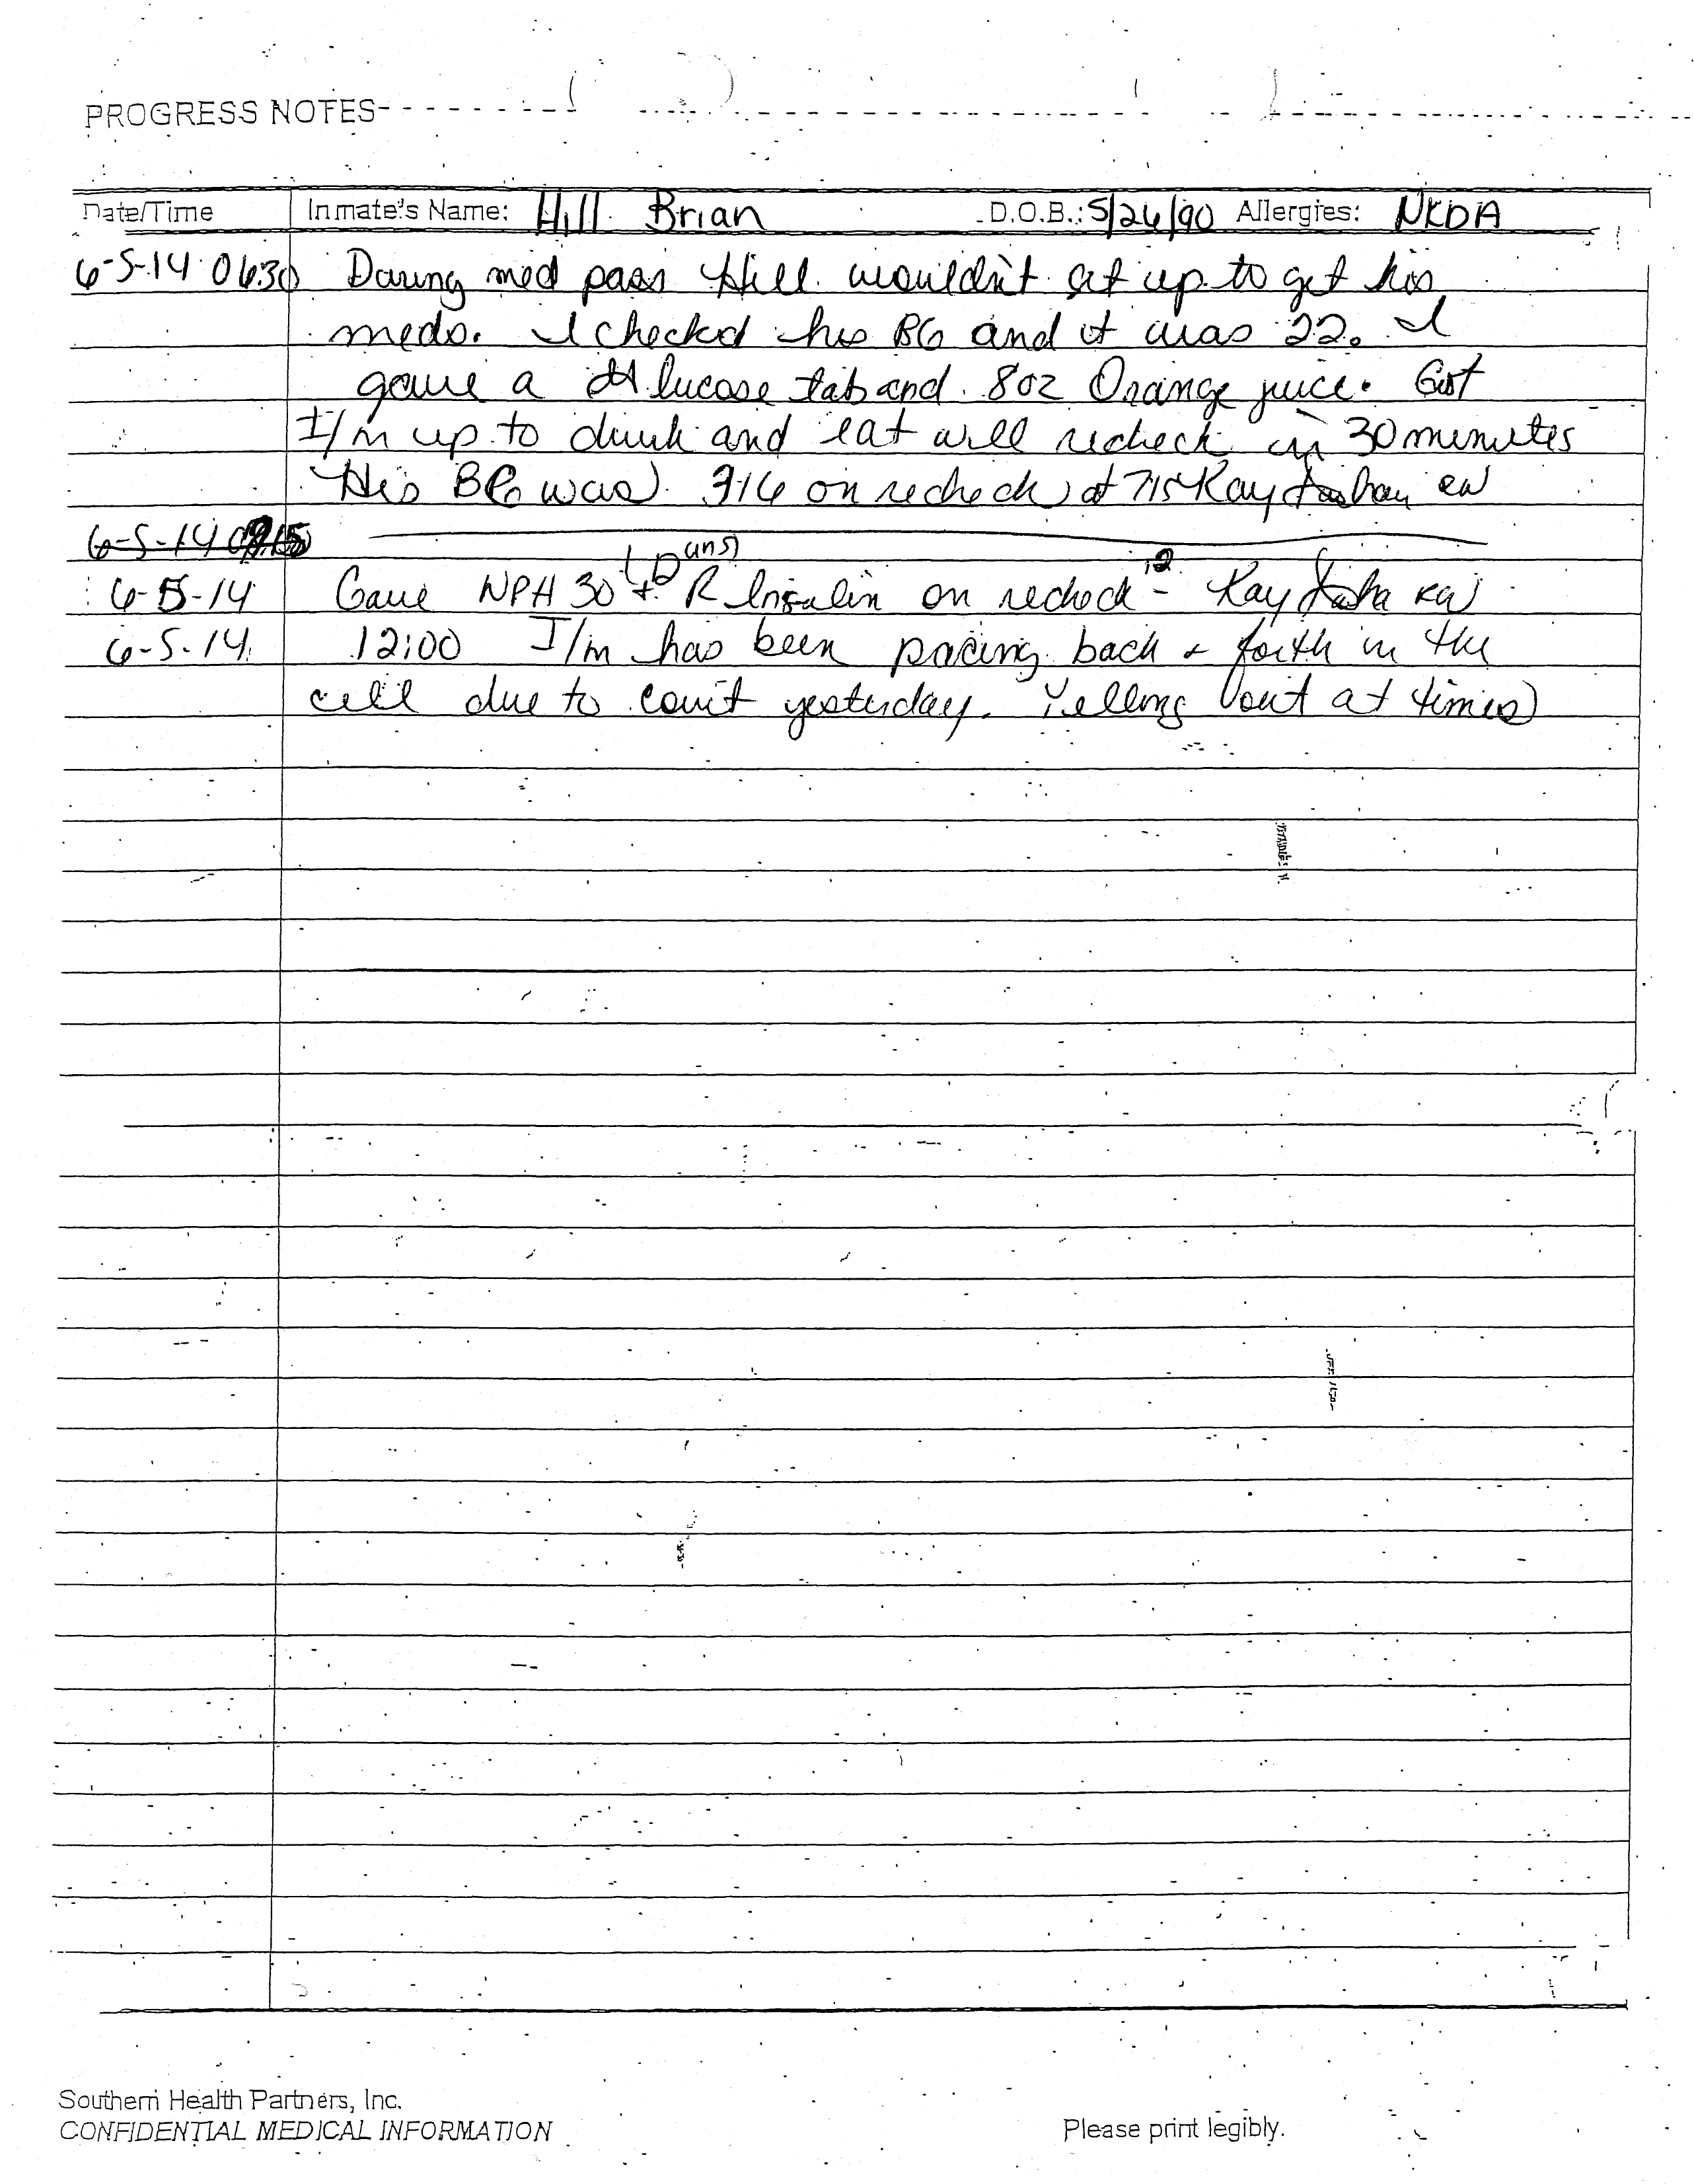 PROGRESS NOTES
Date/Time Inmate's Name: Hill Brian D.O.B.: 5/26/90 Allergies: NKDA
6-5-14 0630 During med pass Hill wouldn't sit up to get his
meds. I checked his BG and it was 22. I
gave a Glucose tab and 8oz Orange juice. Got
I/m up to drink and eat will recheck in 30 minutes
His BG was 316 on recheck at 715 Kay
6-5-14
6-5-14 Gave NPH 30 + R Insulin on recheck - Kay
6-5-14 12:00 I/m has been pacing back & forth in the
cell due to court yesterday. Yelling out at times
Southern Health Partners, Inc.
CONFIDENTIAL MEDICAL INFORMATION Please print legibly.